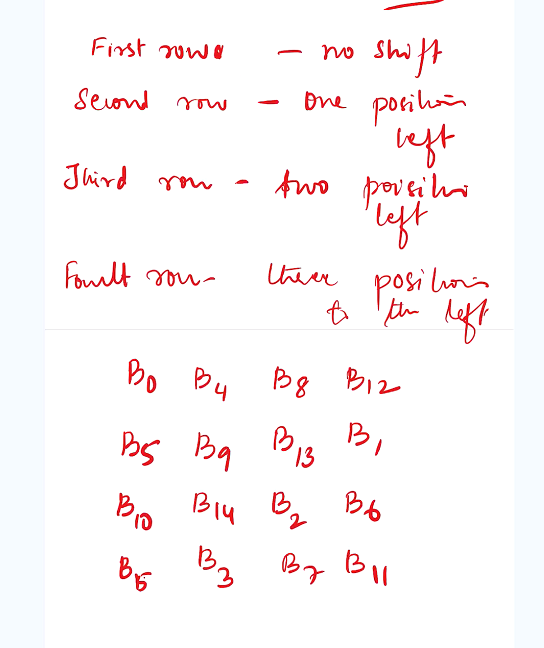 First row - no shift
Second row - one position
left
Third row - two position
left
Fourth row - three positions
to the left
B0 B4 B8 B12
B5 B9 B13 B1
B10 B14 B2 B6
B3 B7 B11